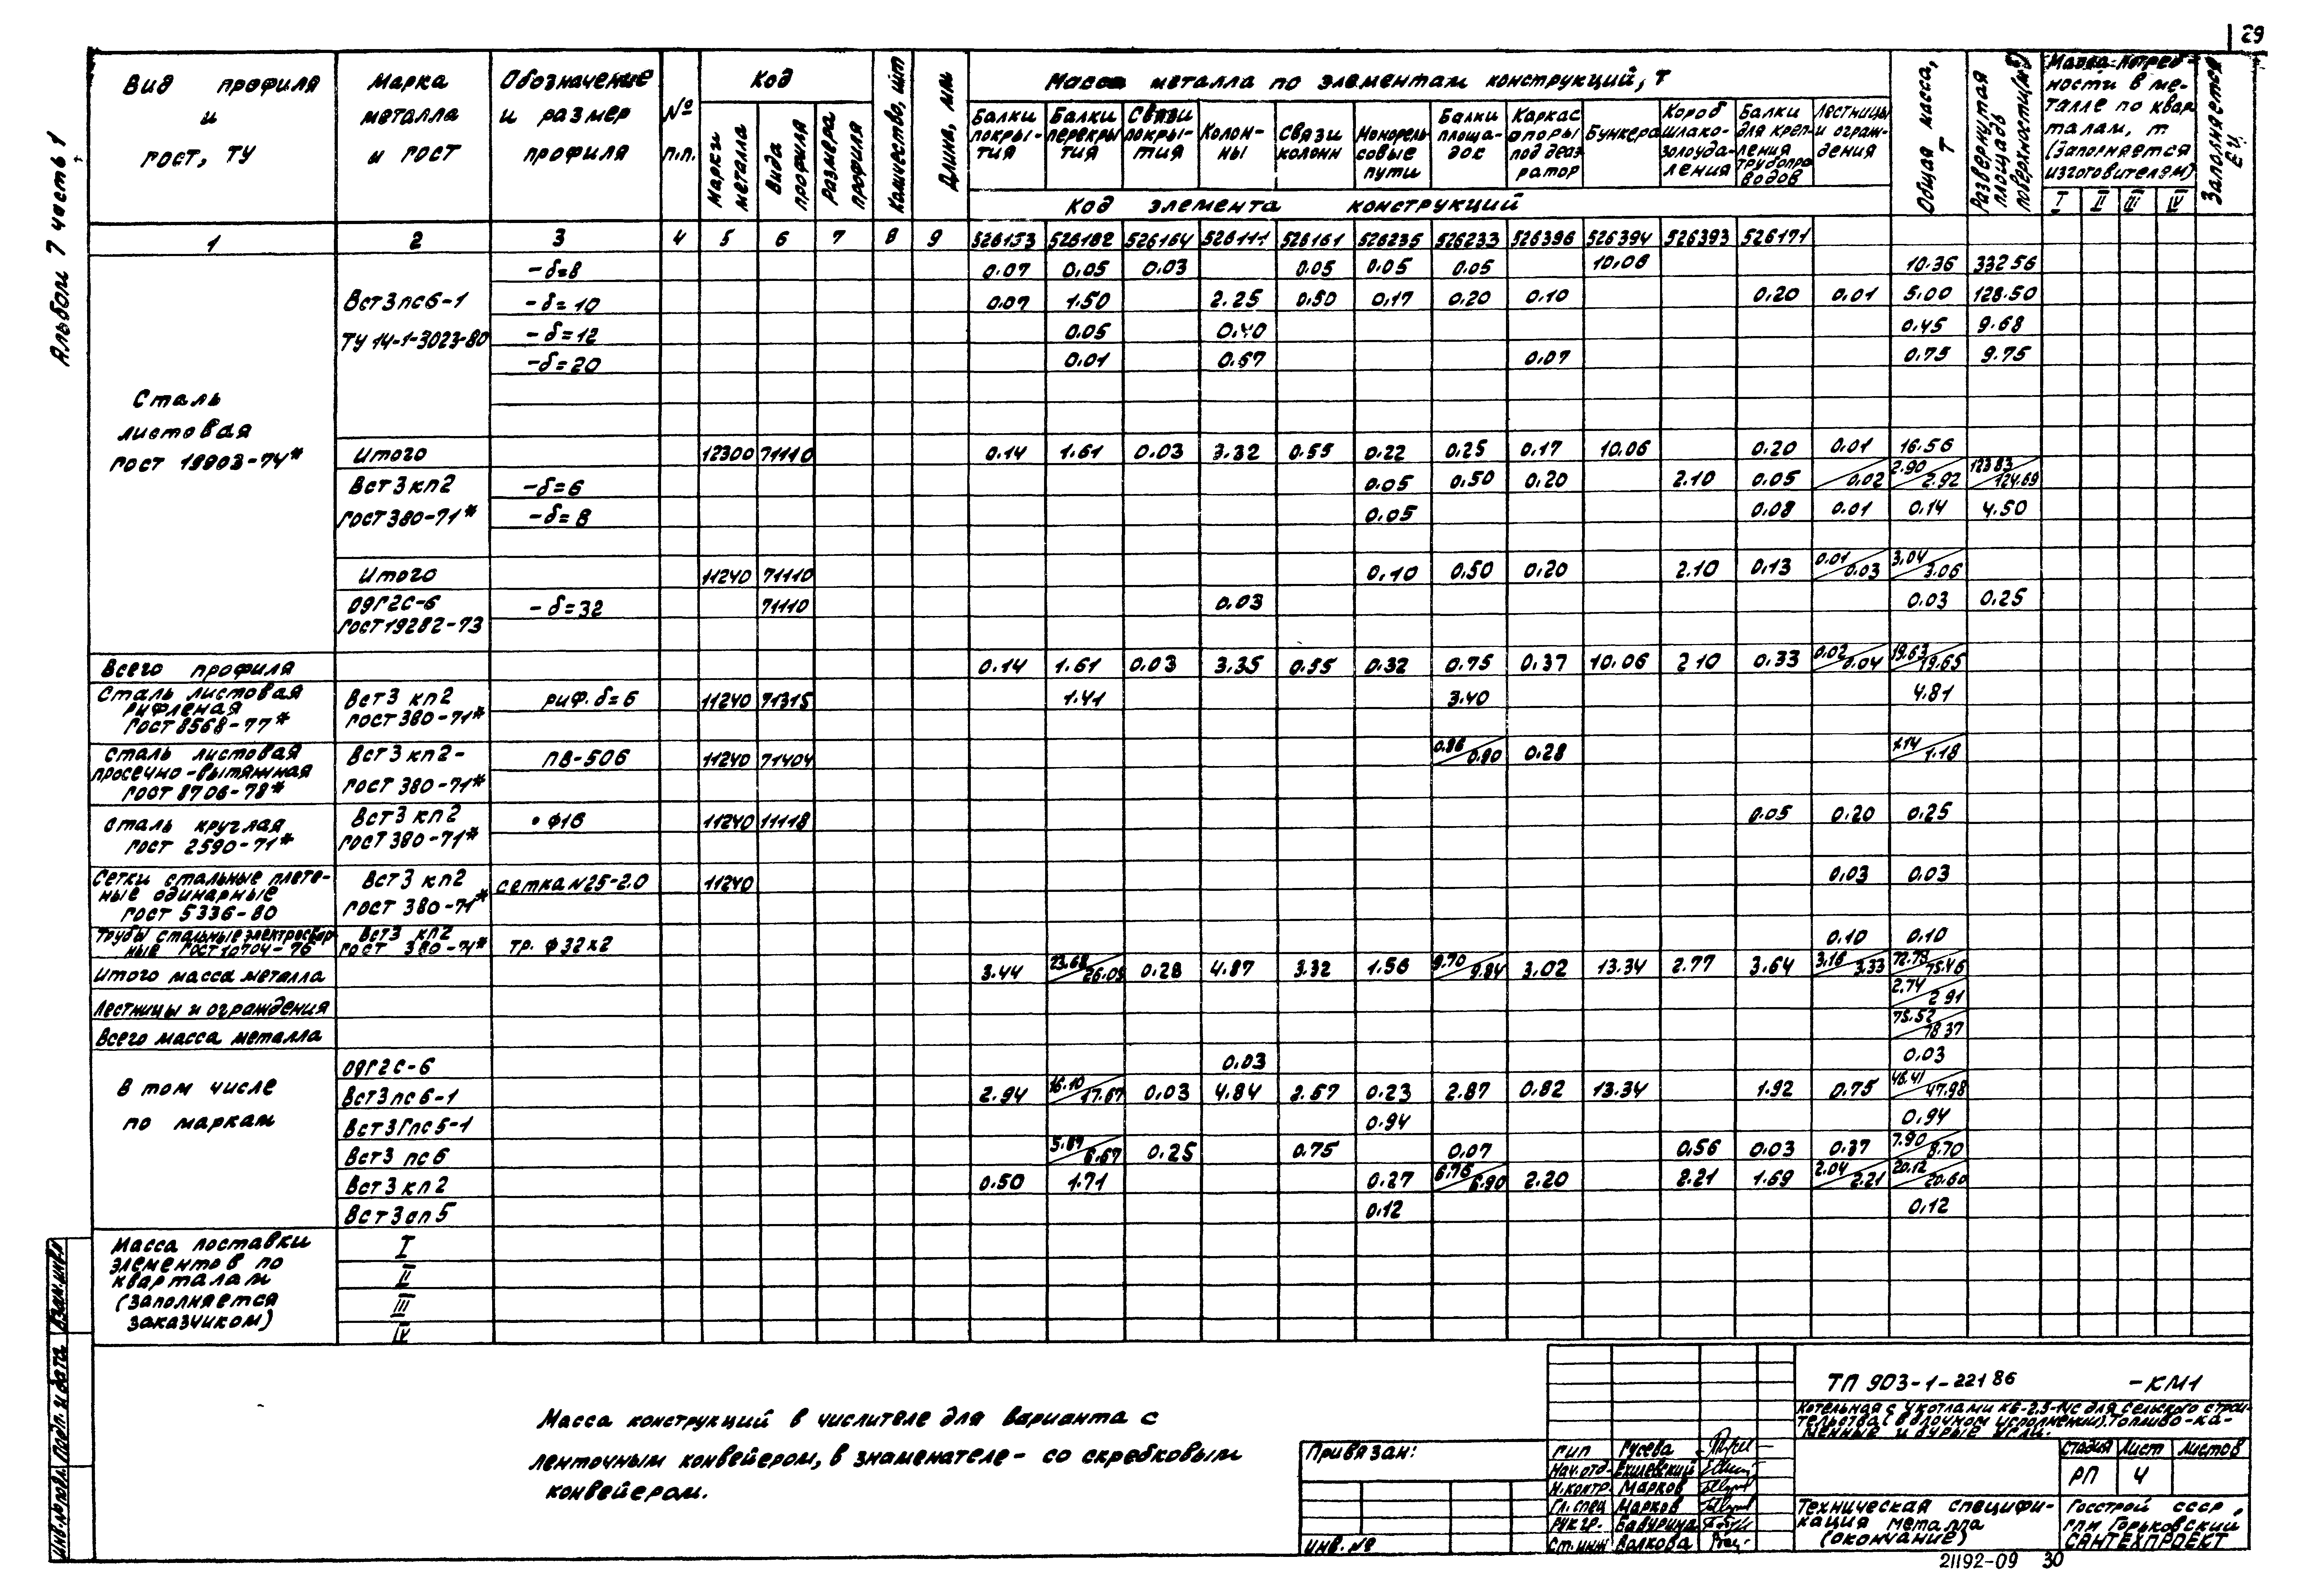 29
Альбом 7 часть 1
Вид профиля и ГОСТ, ТУ
Марка металла и ГОСТ
Обозначение и размер профиля
№ п.п.
Код
Марки металла
Вида профиля
Размера профиля
Количество, шт
Длина, мм
Масса металла по элементам конструкций, т
Балки покрытия
Балки перекрытия
Связи покрытия
Колонны
Связи колонн
Монорельсовые пути
Балки площадок
Каркас опоры под деаэратор
Бункера
Короб шлакозолоудаления
Балки для крепления трубопроводов
Лестницы и ограждения
Код элемента конструкций
Общая масса, Т
Развернутая площадь поверхности (м²)
Масса потребности в металле по кварталам, т (заполняется изготовителем)
I II III IV
Заполняется ВЦ
1 2 3 4 5 6 7 8 9 526153 526182 526164 526111 526161 526235 526233 526396 526394 526393 526171
Сталь листовая ГОСТ 19903-74*
Вст3пс6-1
ТУ 14-1-3023-80
-δ=8 0.07 0.05 0.03 0.05 0.05 0.05 10.06 10.36 332.56
-δ=10 0.07 1.50 2.25 0.50 0.17 0.20 0.10 0.20 0.01 5.00 128.50
-δ=12 0.05 0.40 0.45 9.68
-δ=20 0.01 0.67 0.07 0.75 9.75
Итого 12300 71110 0.14 1.61 0.03 3.32 0.55 0.22 0.25 0.17 10.06 0.20 0.01 16.56
Вст3кп2 -δ=6 0.05 0.50 0.20 2.10 0.05 /0.02 2.90/2.92 123.83/124.69
ГОСТ 380-71* -δ=8 0.05 0.08 0.01 0.14 4.50
Итого 11240 71110 0.10 0.50 0.20 2.10 0.13 0.01/0.03 3.04/3.06
09Г2С-6 -δ=32 71110 0.03 0.03 0.25
ГОСТ 19282-73
Всего профиля 0.14 1.61 0.03 3.35 0.55 0.32 0.75 0.37 10.06 2.10 0.33 0.02/0.04 19.63/19.65
Сталь листовая рифленая ГОСТ 8568-77* Вст3 кп2 ГОСТ 380-71* риф. δ=6 11240 71315 1.41 3.40 4.81
Сталь листовая просечно-вытяжная ГОСТ 8706-78* Вст3 кп2- ГОСТ 380-71* ПВ-506 11240 71404 0.86/0.90 0.28 1.14/1.18
Сталь круглая ГОСТ 2590-71* Вст3 кп2 ГОСТ 380-71* • ф16 11240 11118 0.05 0.20 0.25
Сетки стальные плетеные одинарные ГОСТ 5336-80 Вст3 кп2 ГОСТ 380-71* сетка N25-2.0 11240 0.03 0.03
Трубы стальные электросварные ГОСТ 10704-76 Вст3 кп2 ГОСТ 380-71* тр. ф32х2 0.10 0.10
Итого масса металла 3.44 23.68/26.05 0.28 4.87 3.32 1.56 9.70/9.84 3.02 13.34 2.77 3.64 3.16/3.33 72.78/75.46
Лестницы и ограждения 2.74/2.91
Всего масса металла 75.52/78.37
В том числе по маркам
09Г2С-6 0.03 0.03
Вст3пс6-1 2.94 16.10/17.67 0.03 4.84 2.57 0.23 2.87 0.82 13.34 1.92 0.75 46.41/47.98
Вст3Гпс5-1 0.94 0.94
Вст3 пс6 5.87/6.67 0.25 0.75 0.07 0.56 0.03 0.37 7.90/8.70
Вст3кп2 0.50 1.71 0.27 6.76/6.90 2.20 2.21 1.69 2.04/2.21 20.12/20.60
Вст3сп5 0.12 0.12
Масса поставки элементов по кварталам (заполняется заказчиком)
I
II
III
IV
Масса конструкций в числителе для варианта с
ленточным конвейером, в знаменателе - со скребковым
конвейером.
Привязан:
Инв. №
ГИП Гусева
Нач. отд. Ехилевский
Н. контр. Марков
Гл. спец Марков
Рук гр. Бавурина
Ст. инж Валкова
ТП 903-1-221 86 -КМ1
Котельная с 4 котлами КЕ-2,5-14С для сельского строительства (в блочном исполнении). Топливо - каменные и бурые угли.
Стадия Лист Листов
РП 4
Техническая спецификация металла (окончание)
Госстрой СССР
ГПИ Горьковский
САНТЕХПРОЕКТ
21192-09 30
Инв. № подл. Подп. и дата Взам. инв. №